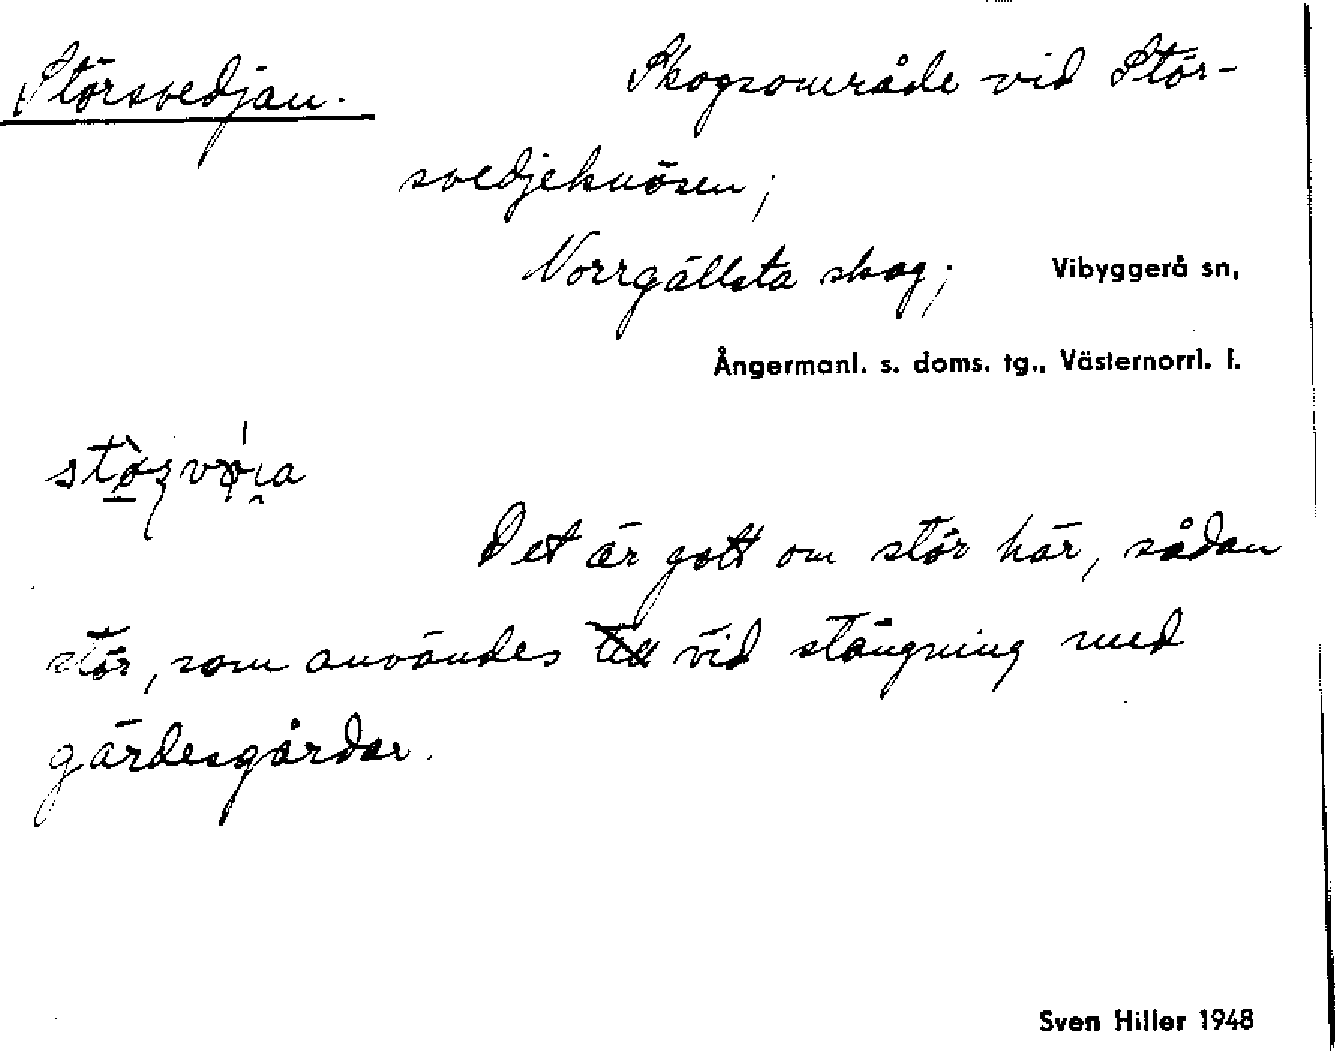 Störsvedjan. Skogsområde vid Stör-
svedjeknösen;
Norrgällsta skog; Vibyggerå sn,
Ångermanl. s. doms. tg., Västernorrl. l.
Det är gott om stör här, sådan
stör, som användes till vid stängning med
gärdesgårdar.
Sven Hiller 1948